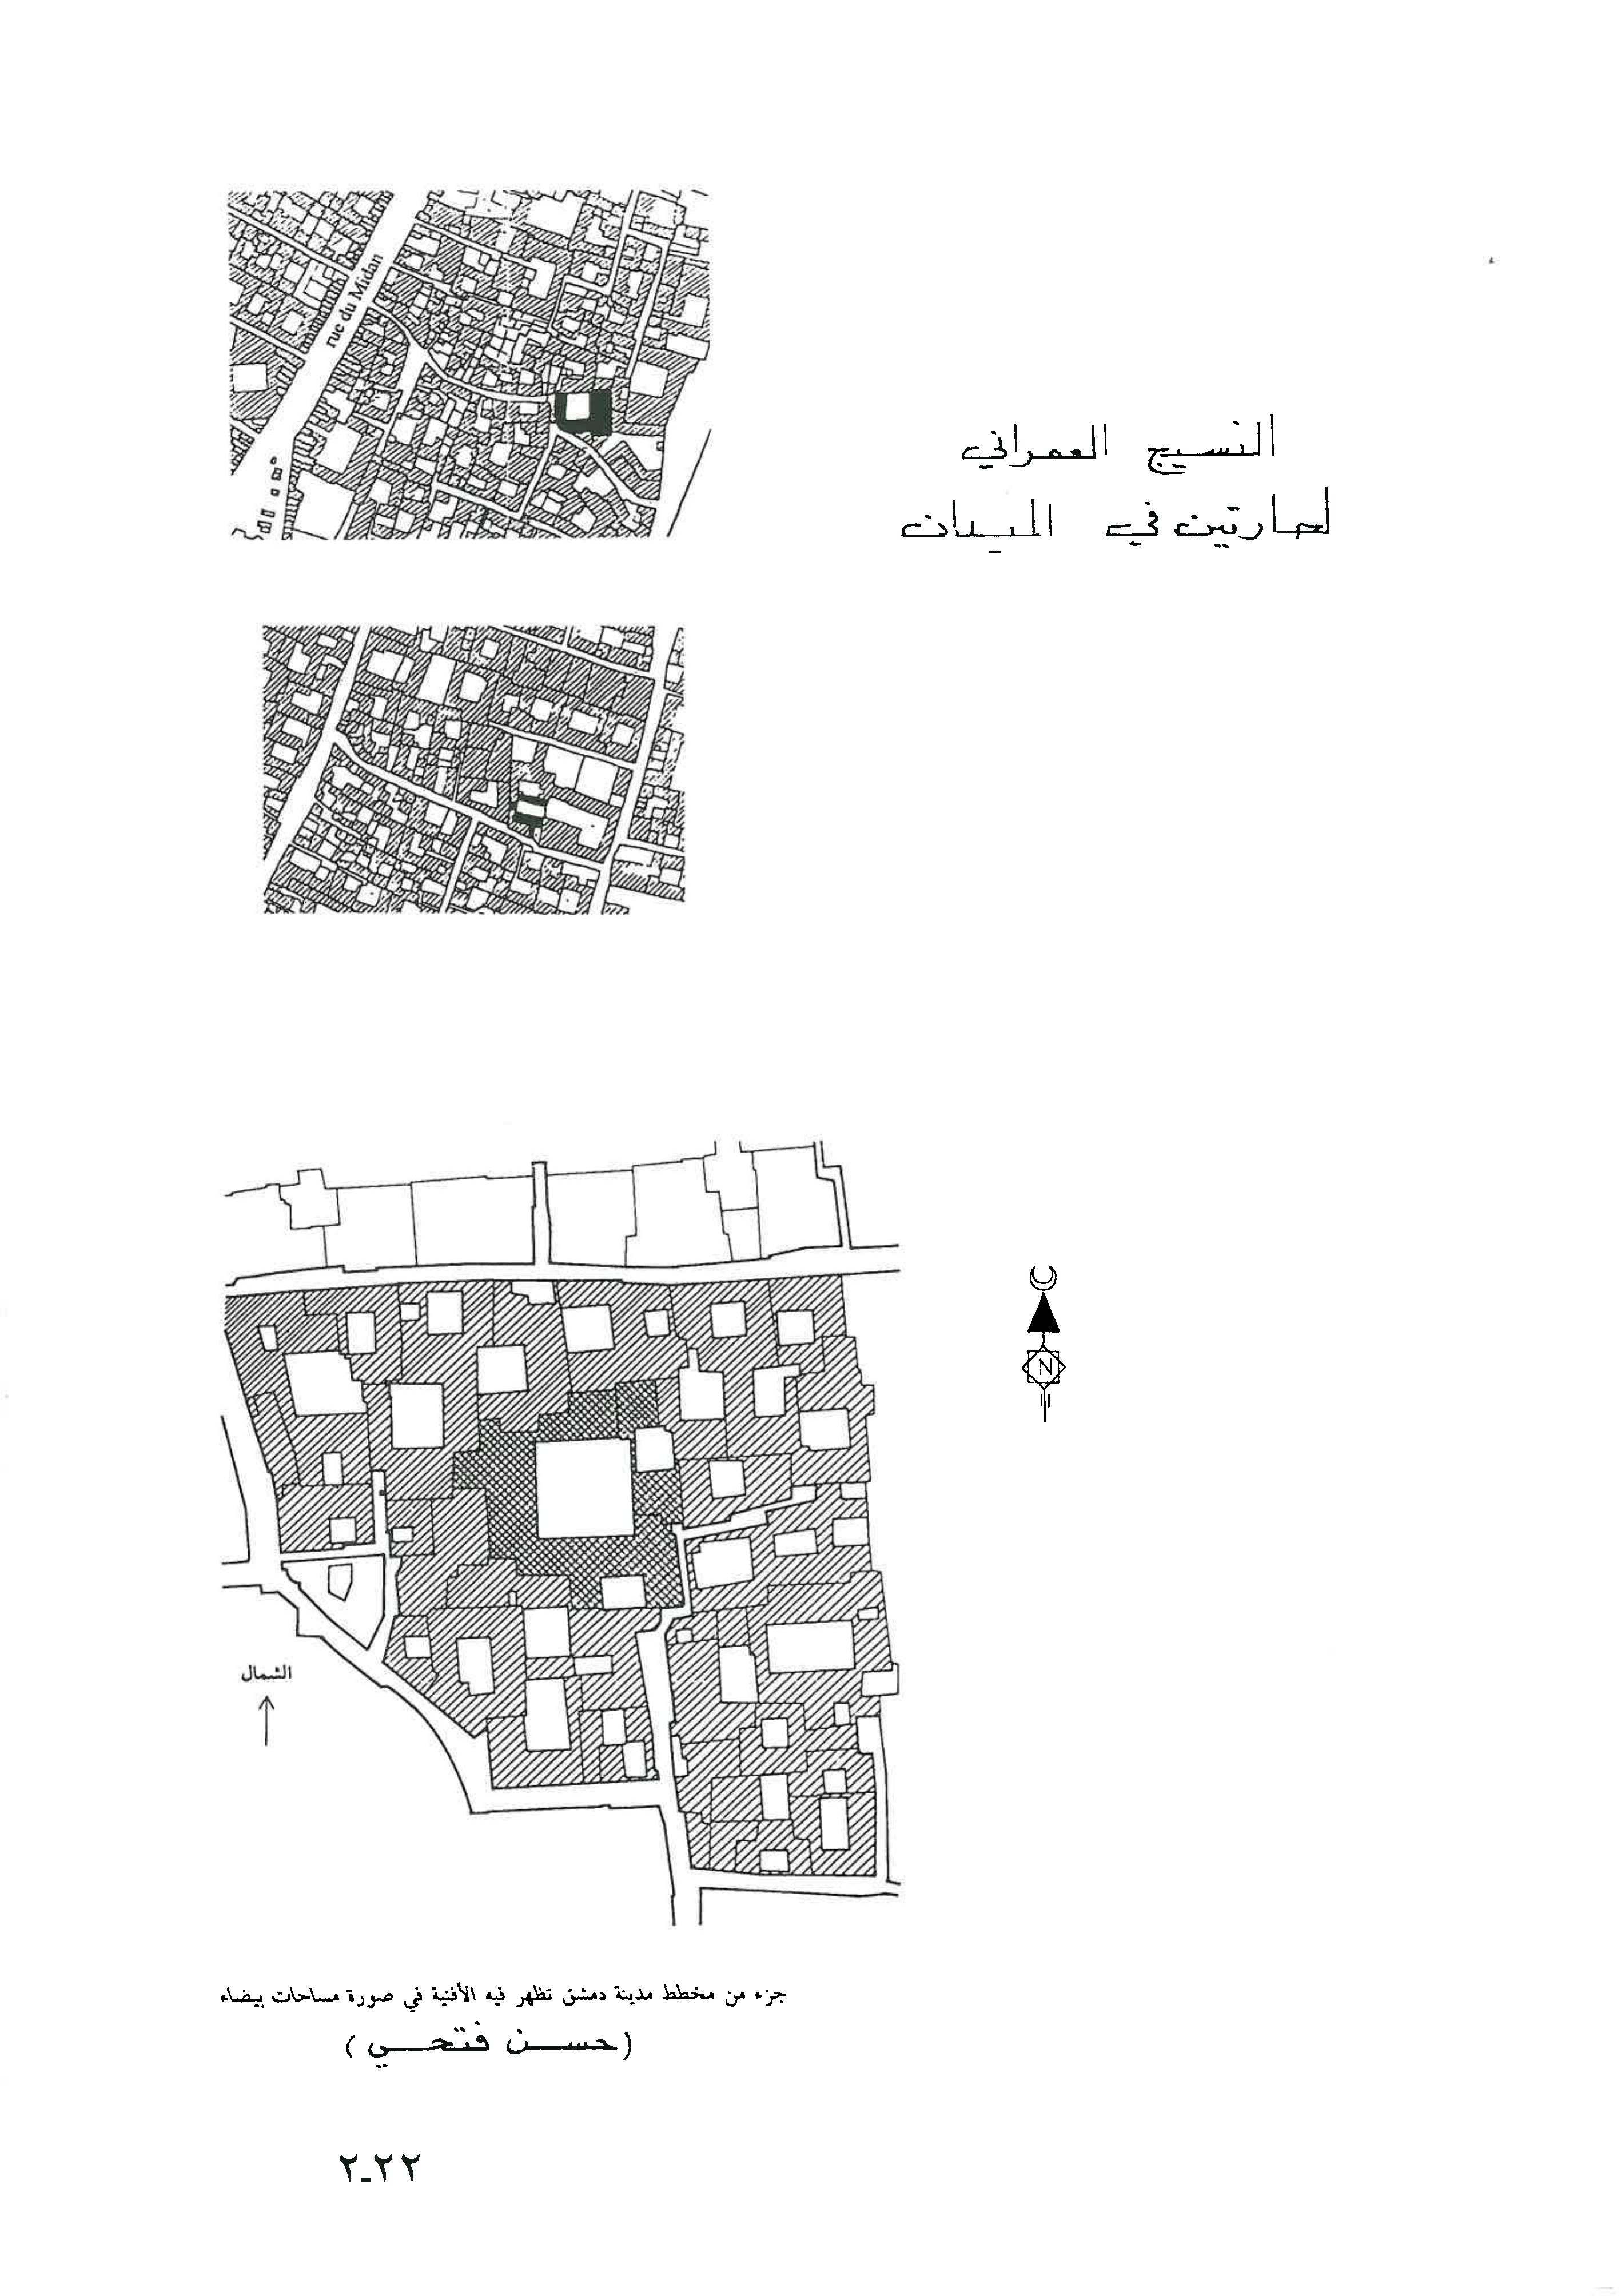 rue du Midan
النسيج العمراني
لحارتين في الميدان
N
الشمال
جزء من مخطط مدينة دمشق تظهر فيه الأفنية في صورة مساحات بيضاء
(حسن فتحي)
٢-٢٢